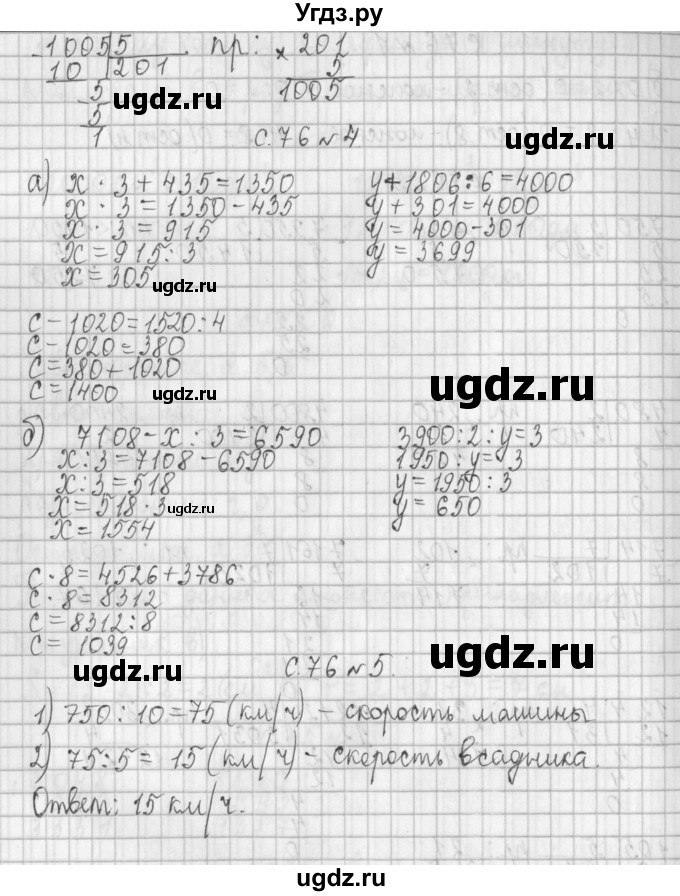 Угдз.ру
1005|5 пр: × 201
10 201 5
5 1005
5
1
ugdz.ru ugdz.ru
с.76 №4
а) x · 3 + 435 = 1350 y + 1806 : 6 = 4000
x · 3 = 1350 - 435 y + 301 = 4000
x · 3 = 915 y = 4000 - 301
x = 915 : 3 y = 3699
x = 305
ugdz.ru
c - 1020 = 1520 : 4
c - 1020 = 380
c = 380 + 1020
c = 1400
ugdz.ru ugdz.ru
б) 7108 - x : 3 = 6590 3900 : 2 : y = 3
x : 3 = 7108 - 6590 1950 : y = 3
x : 3 = 518 y = 1950 : 3
x = 518 · 3 y = 650
x = 1554
ugdz.ru
c · 8 = 4526 + 3786
c · 8 = 8312
c = 8312 : 8
c = 1039
ugdz.ru ugdz.ru
с.76 №5.
1) 750 : 10 = 75 (км/ч) - скорость машины
2) 75 : 5 = 15 (км/ч) - скорость всадника.
Ответ: 15 км/ч.
ugdz.ru ugdz.ru
ugdz.ru